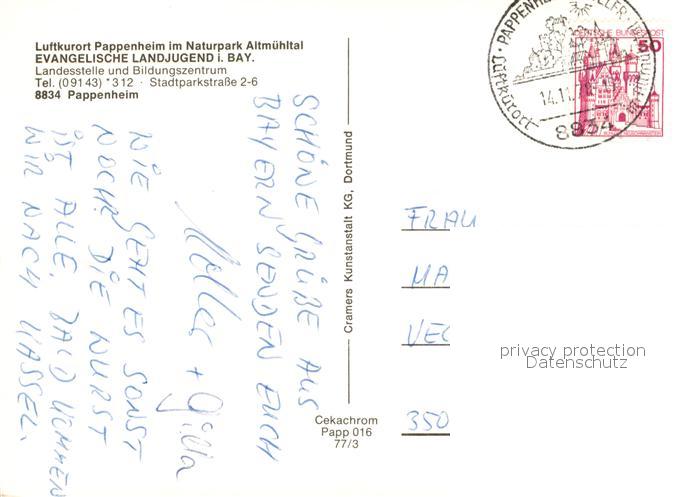 Luftkurort Pappenheim im Naturpark Altmühltal
EVANGELISCHE LANDJUGEND i. BAY.
Landesstelle und Bildungszentrum
Tel. (0 91 43) *312 · Stadtparkstraße 2-6
8834 Pappenheim
SCHÖNE GRÜßE AUS
BAYERN SENDEN EUCH
+ Gilla
WIE GEHT ES SONST
NOCH? DIE WURST
IST ALLE. BALD KOMMEN
WIR NACH KASSEL.
Cramers Kunstanstalt KG, Dortmund
Cekachrom
Papp 016
77/3
DEUTSCHE BUNDESPOST
50
PAPPENHEIM
Luftkurort
14.11.
8834
FRAU
MA
VEC
350
privacy protection
Datenschutz